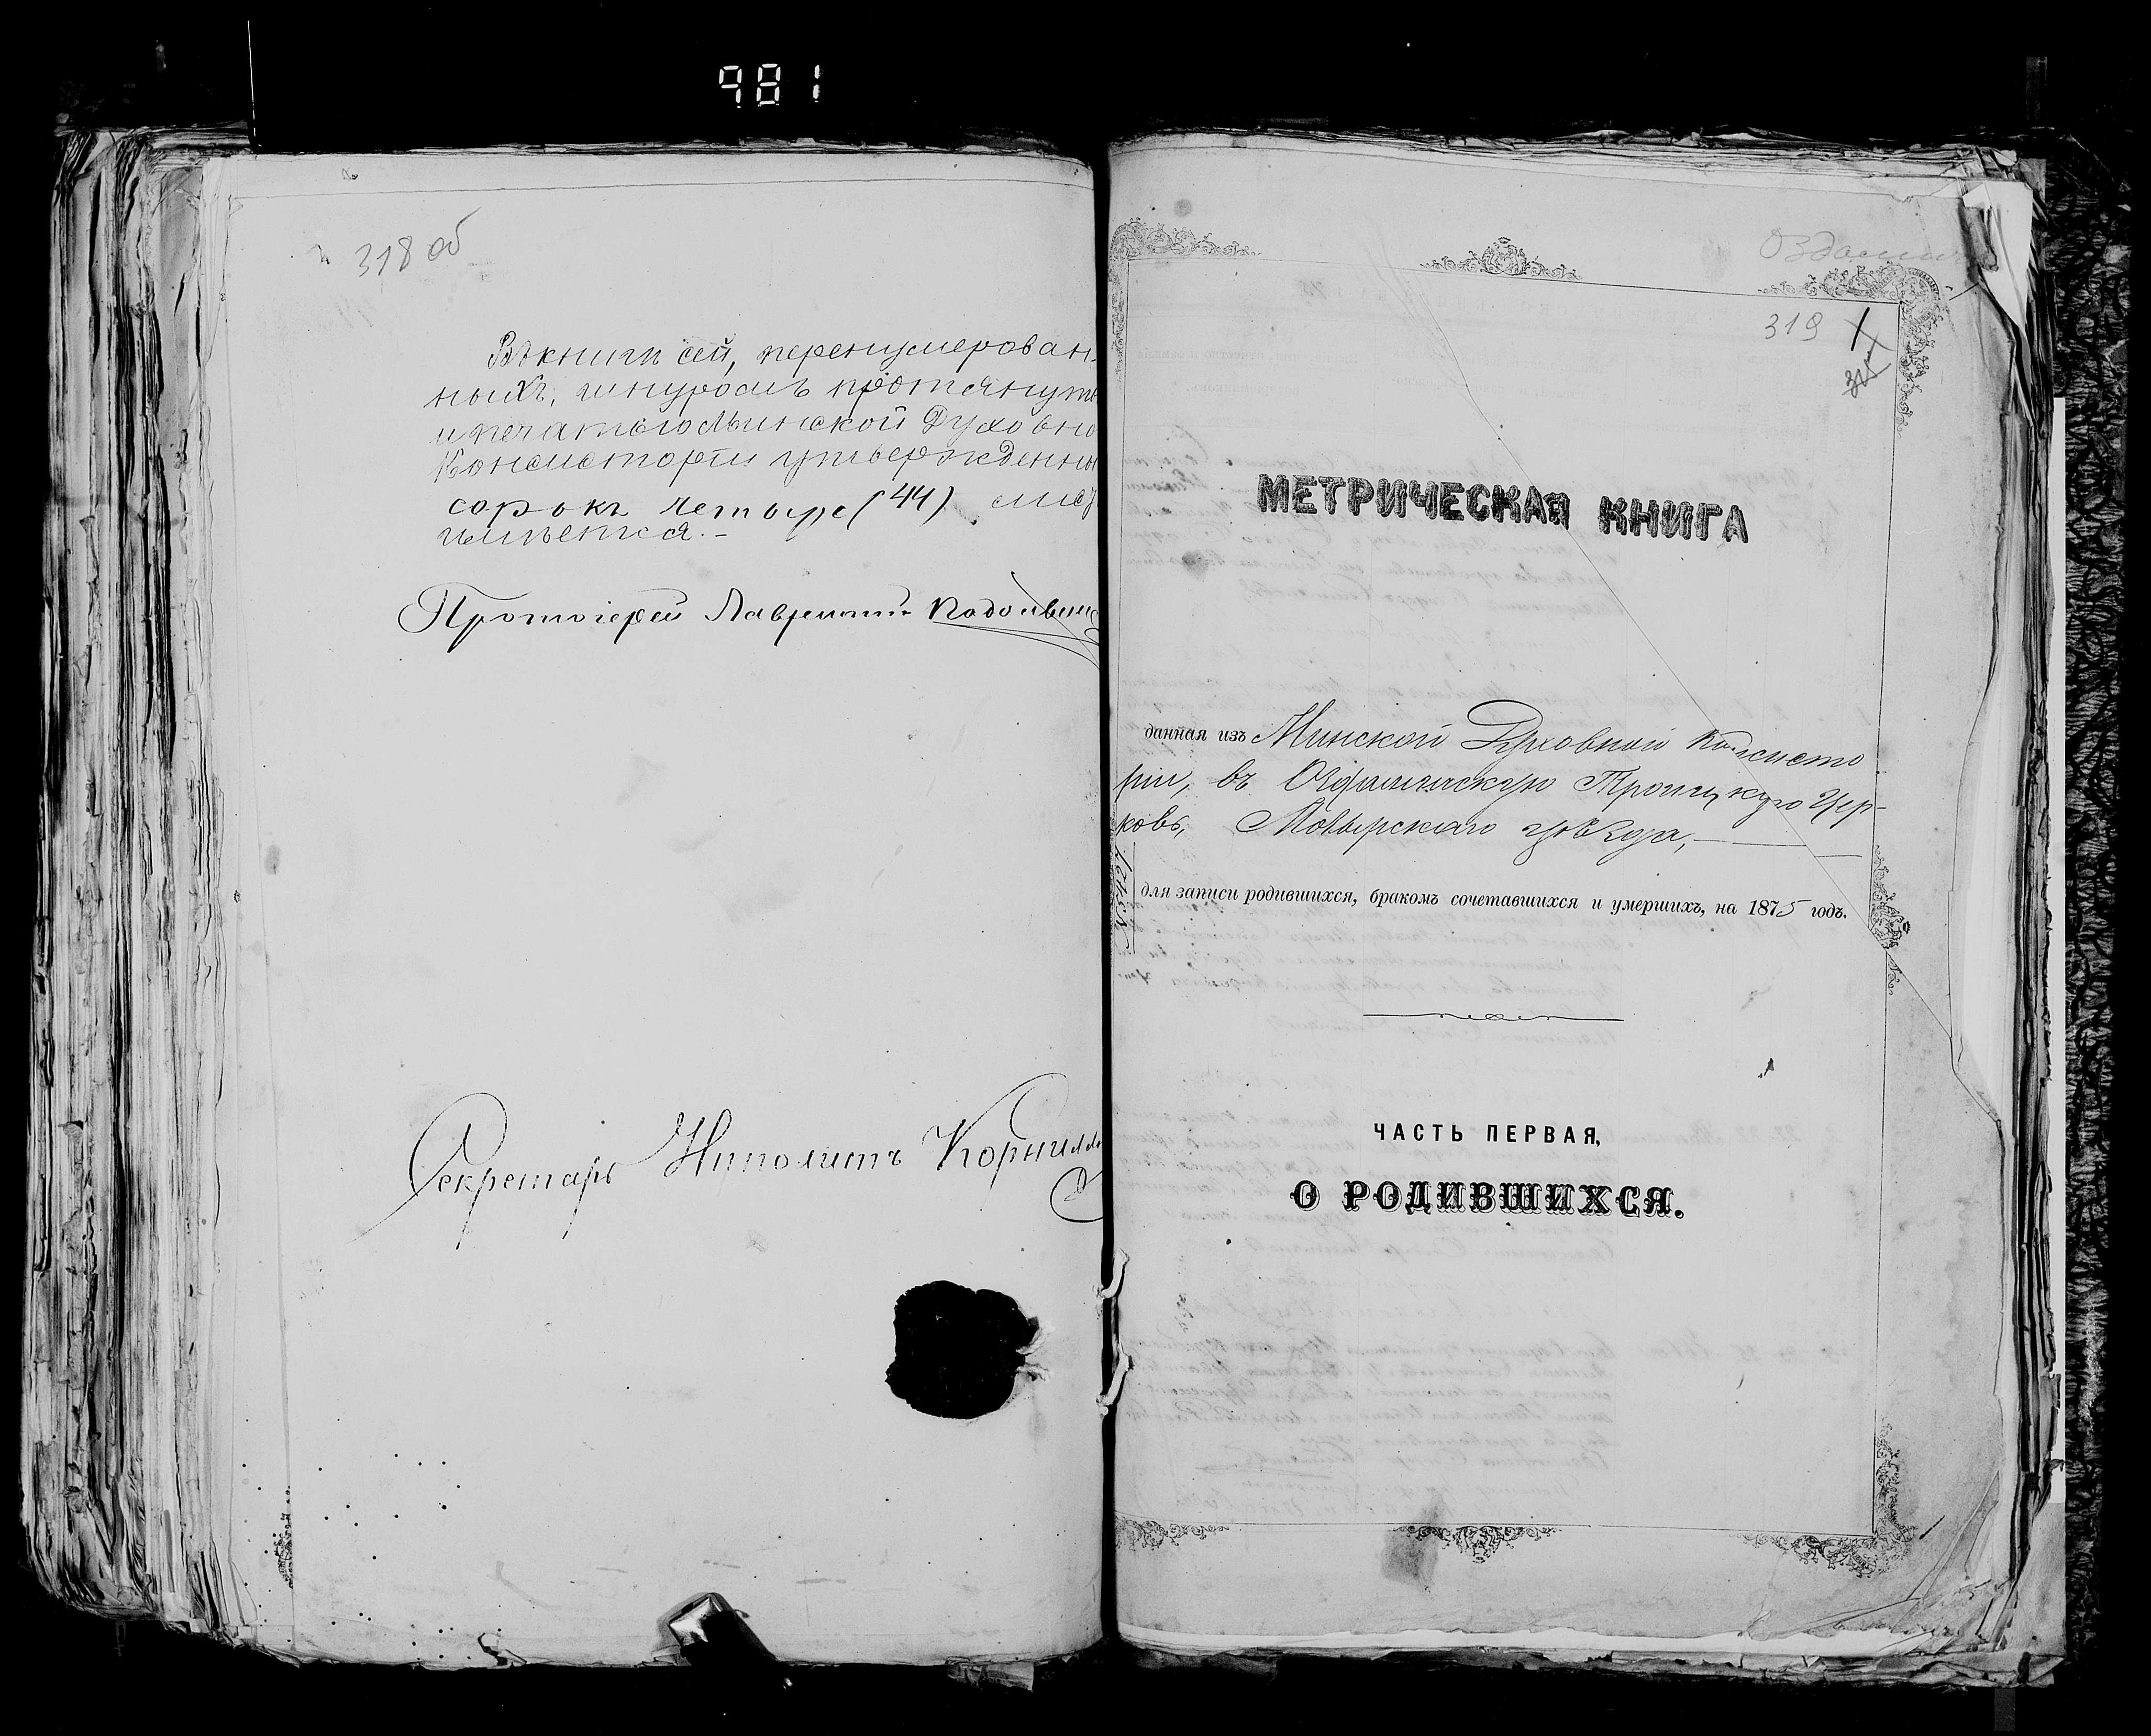 981
318 об
Въ книгѣ сей, перенумерован-
ныхъ, шнуромъ протянуты
и печатью Минской Духовно
Консисторіи утвержденны
сорокъ четыре (44)
имѣется.-
Протоіерей Лаврентій
Секретарь Ипполитъ Корнилло
319
МЕТРИЧЕСКАЯ КНИГА
данная изъ Минской Духовной Консисто
ріи, въ Троицкую Цер-
ковь, Мозырскаго уѣзда,
для записи родившихся, бракомъ сочетавшихся и умершихъ, на 1875 годъ.
ЧАСТЬ ПЕРВАЯ,
О РОДИВШИХСЯ.